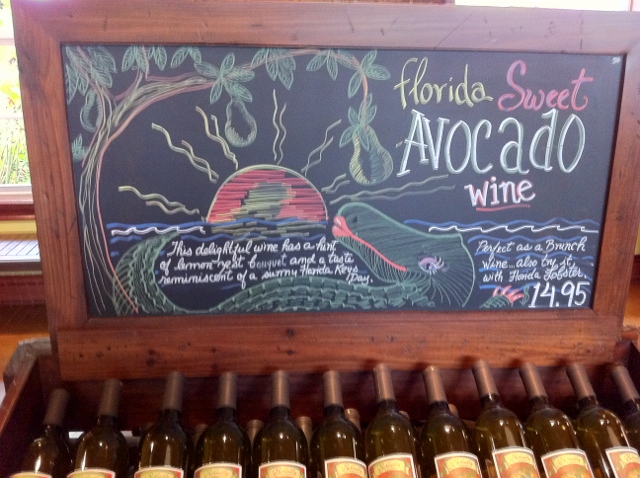 florida Sweet
AVOCADO
wine
This delightful wine has a hint
of lemon zest bouquet and a taste
reminiscent of a sunny Florida Keys
Day.
Perfect as a Brunch
wine...also try it
with Florida Lobster.
14.95